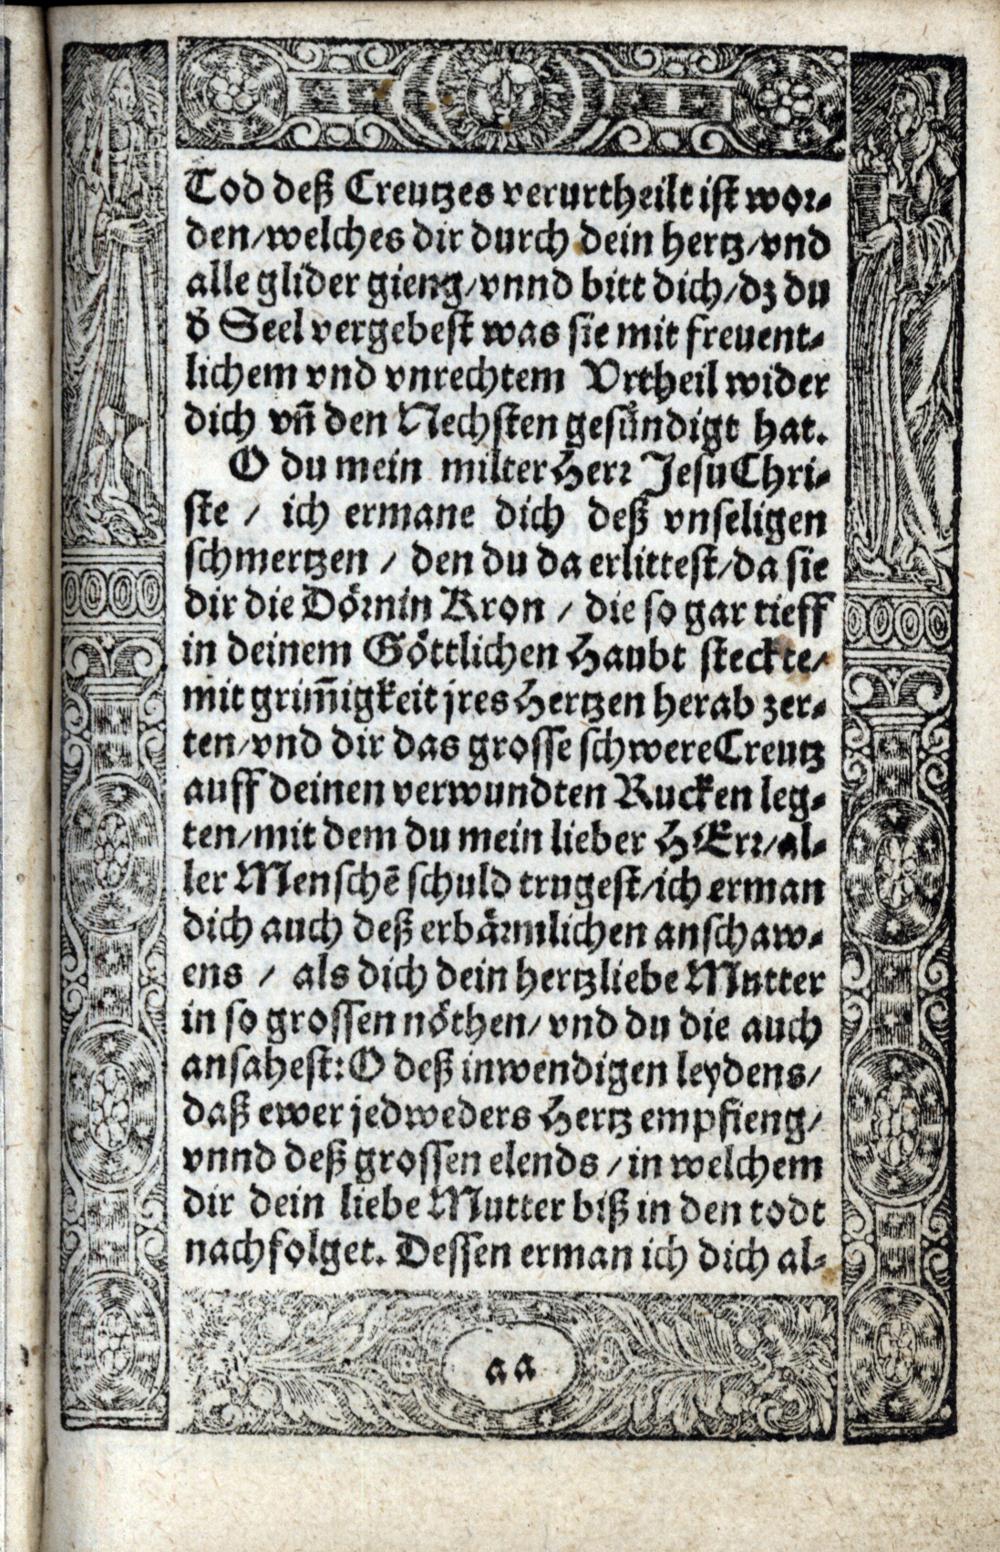 Tod deß Creutzes verurtheilt ist wor-
den/welches dir durch dein hertz/vnd
alle glider gieng/vnnd bitt dich/dz du
d̕ Seel vergebest was sie mit freuent-
lichem vnd vnrechtem Vrtheil wider
dich vñ den Nechsten gesündigt hat.
O du mein milter Herr Jesu Chri-
ste / ich ermane dich deß vnseligen
schmertzen / den du da erlittest/da sie
dir die Dörnin Kron / die so gar tieff
in deinem Göttlichen Haubt steckte/
mit grim̃igkeit jres Hertzen herab zer-
ten/vnd dir das grosse schwere Creutz
auff deinen verwundten Rucken leg-
ten/mit dem du mein lieber HErr/al-
ler Menschẽ schuld trugest/ich erman
dich auch deß erbärmlichen anschaw-
ens / als dich dein hertzliebe Mutter
in so grossen nöthen/ vnd du die auch
ansahest: O deß inwendigen leydens/
daß ewer jedweders Hertz empfieng/
vnnd deß grossen elends / in welchem
dir dein liebe Mutter biß in den todt
nachfolget. Dessen erman ich dich al-
aa